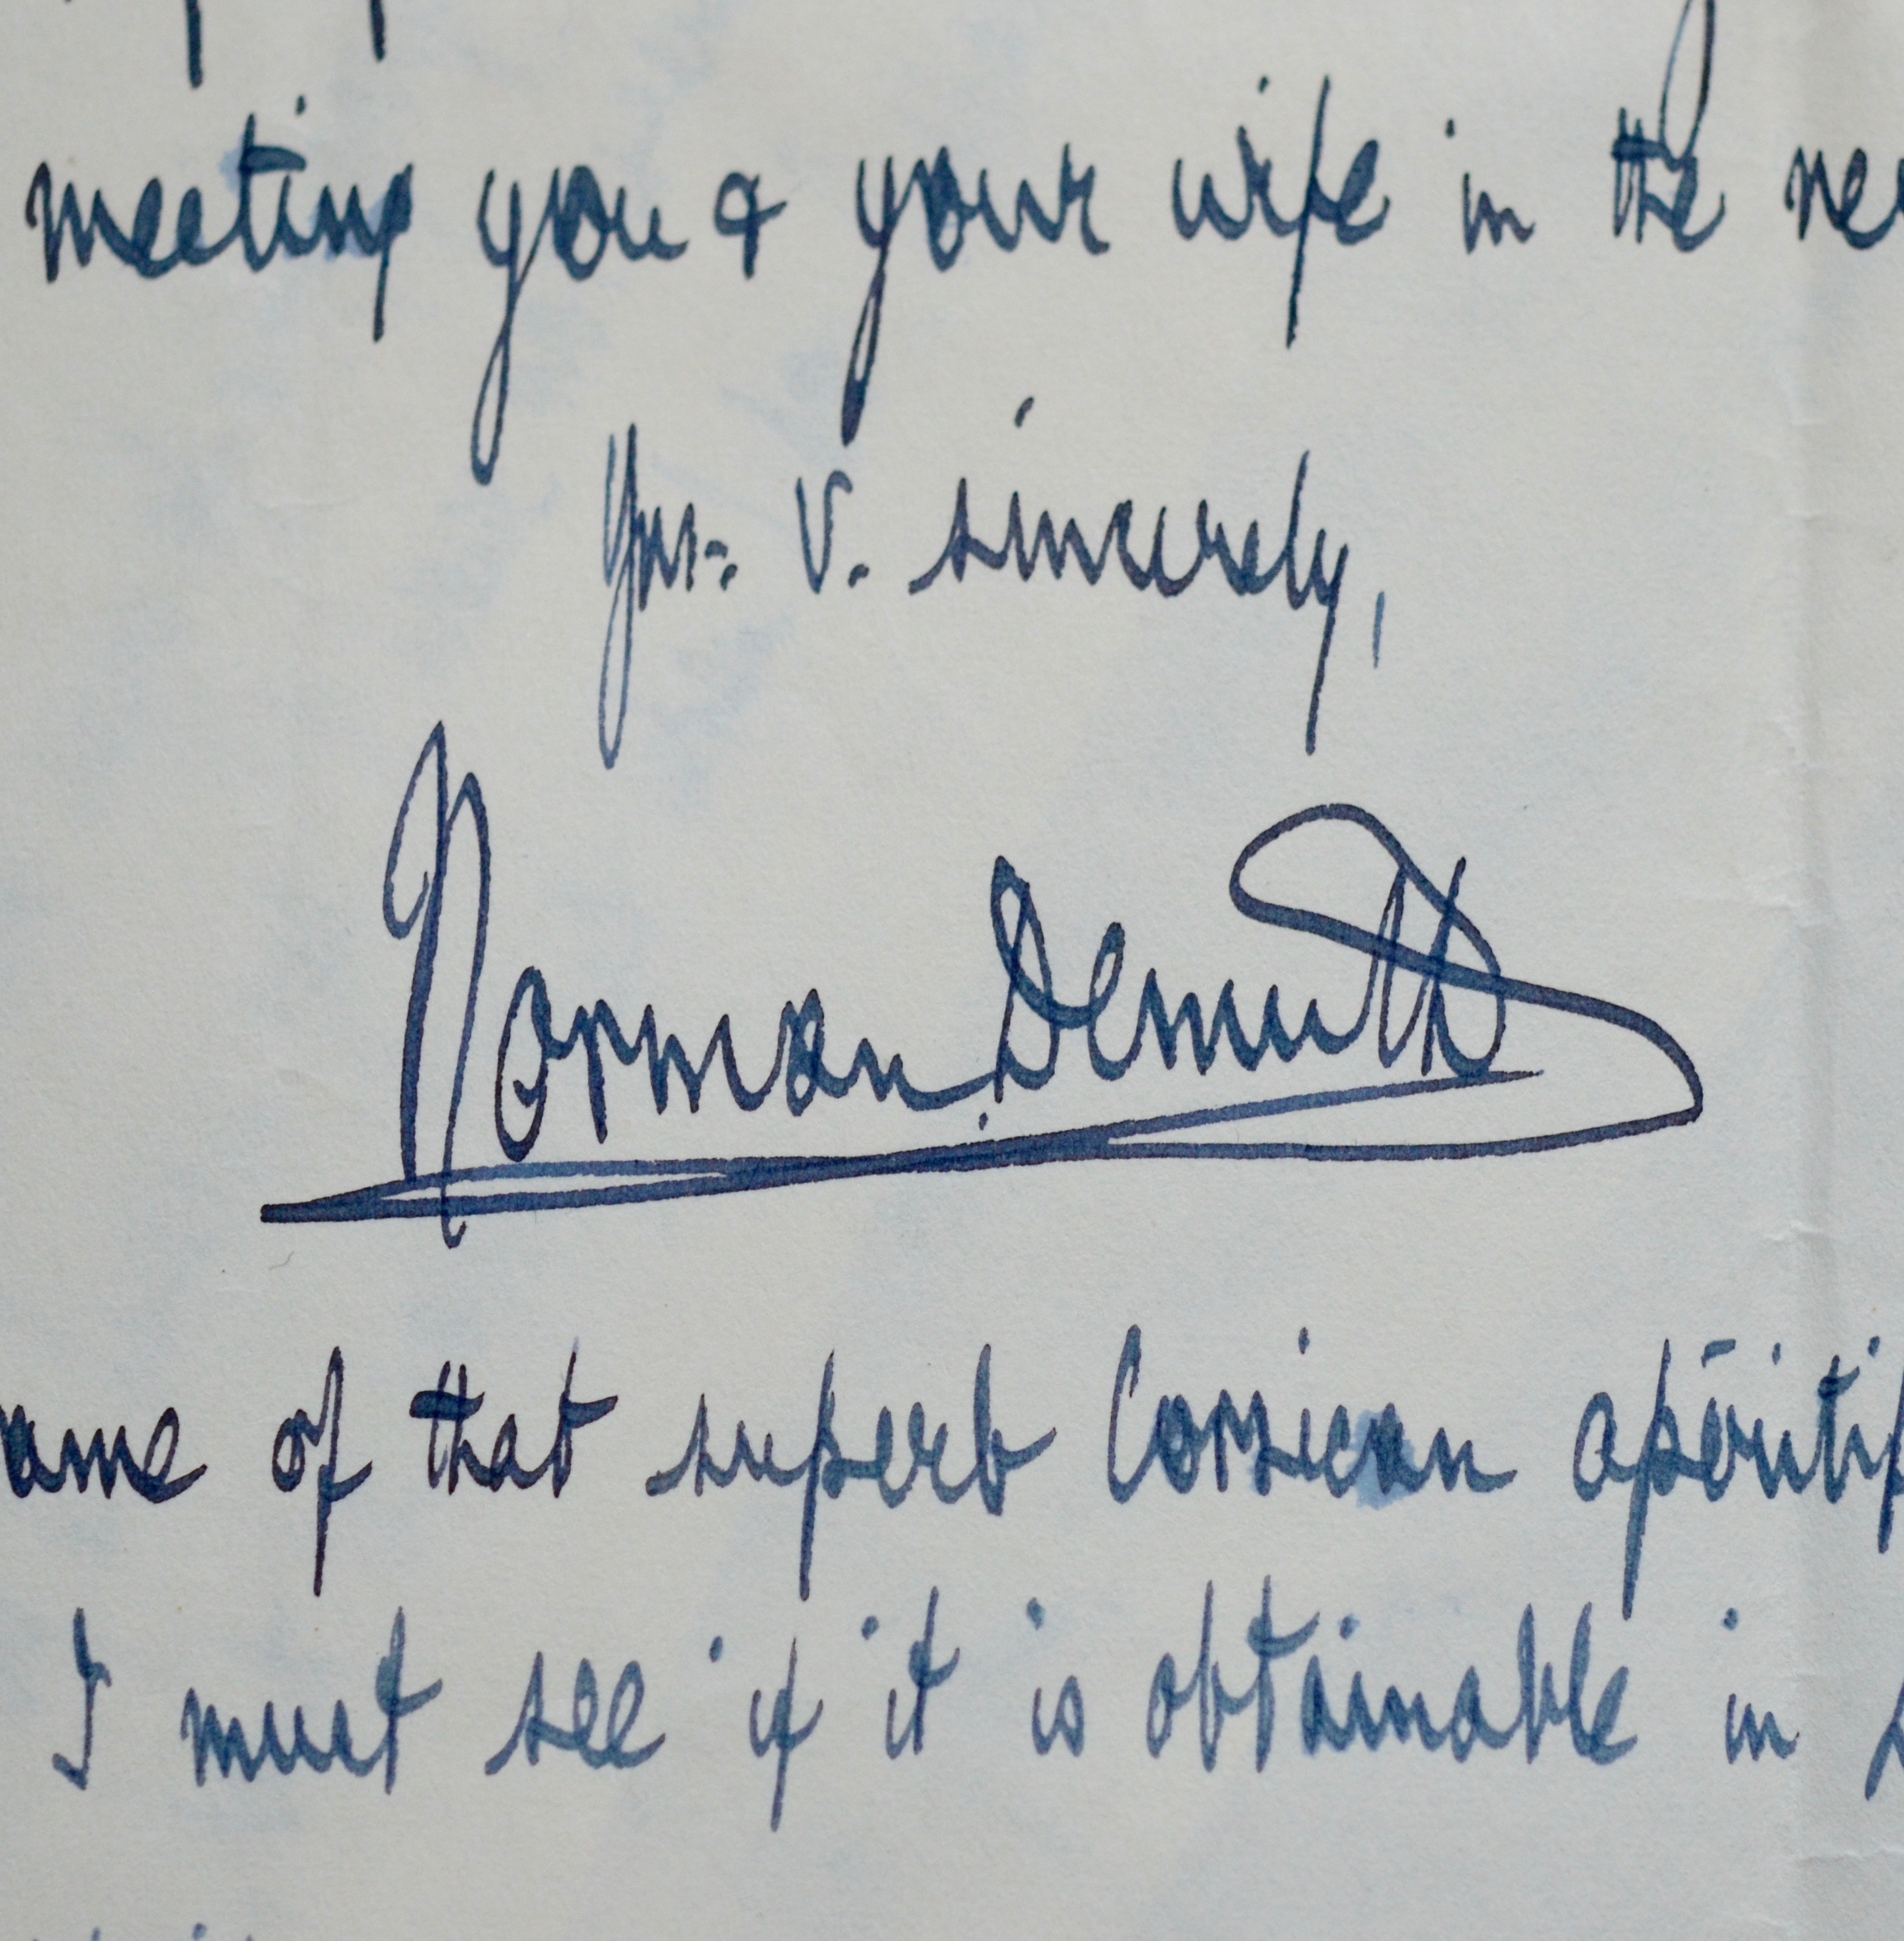 meeting you & your wife in the
Yrs. v. sincerely,
Norman Demuth
of that superb Corsican apéritif
I must see if it is obtainable in